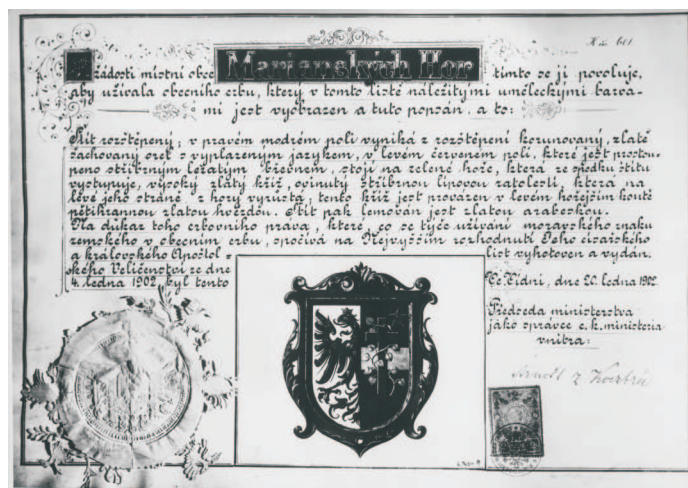 K čís. 601
K žádosti místní obce Mariánských Hor tímto se jí povoluje,
aby užívala obecního erbu, který v tomto listě náležitými uměleckými barva-
mi jest vyobrazen a tuto popsán, a to:
Štít rozštěpený; v pravém modrém poli vyniká z rozštěpení korunovaný, zlatě
šachovaný orel s vyplazeným jazykem, v levém červeném poli, které jest prostou-
peno stříbrným ležatým břevnem, stojí na zelené hoře, která ze spodku štítu
vystupuje, vysoký zlatý kříž, ovinutý stříbrnou lipovou ratolestí, která na
levé jeho straně z hory vyrůstá; tento kříž jest provázen v levém hořejším koutě
pětihrannou zlatou hvězdou. Štít pak lemován jest zlatou arabeskou.
Na důkaz toho erbovního práva, které, co se týče užívání moravského znaku
zemského v obecním erbu, spočívá na Nejvyšším rozhodnutí Jeho císařského
a královského Apoštol=
ského Veličenství ze dne
4. ledna 1902, byl tento
list vyhotoven a vydán.
Ve Vídni, dne 20. ledna 1902.
Předseda ministerstva
jako správce c. k. ministeria
vnitra: